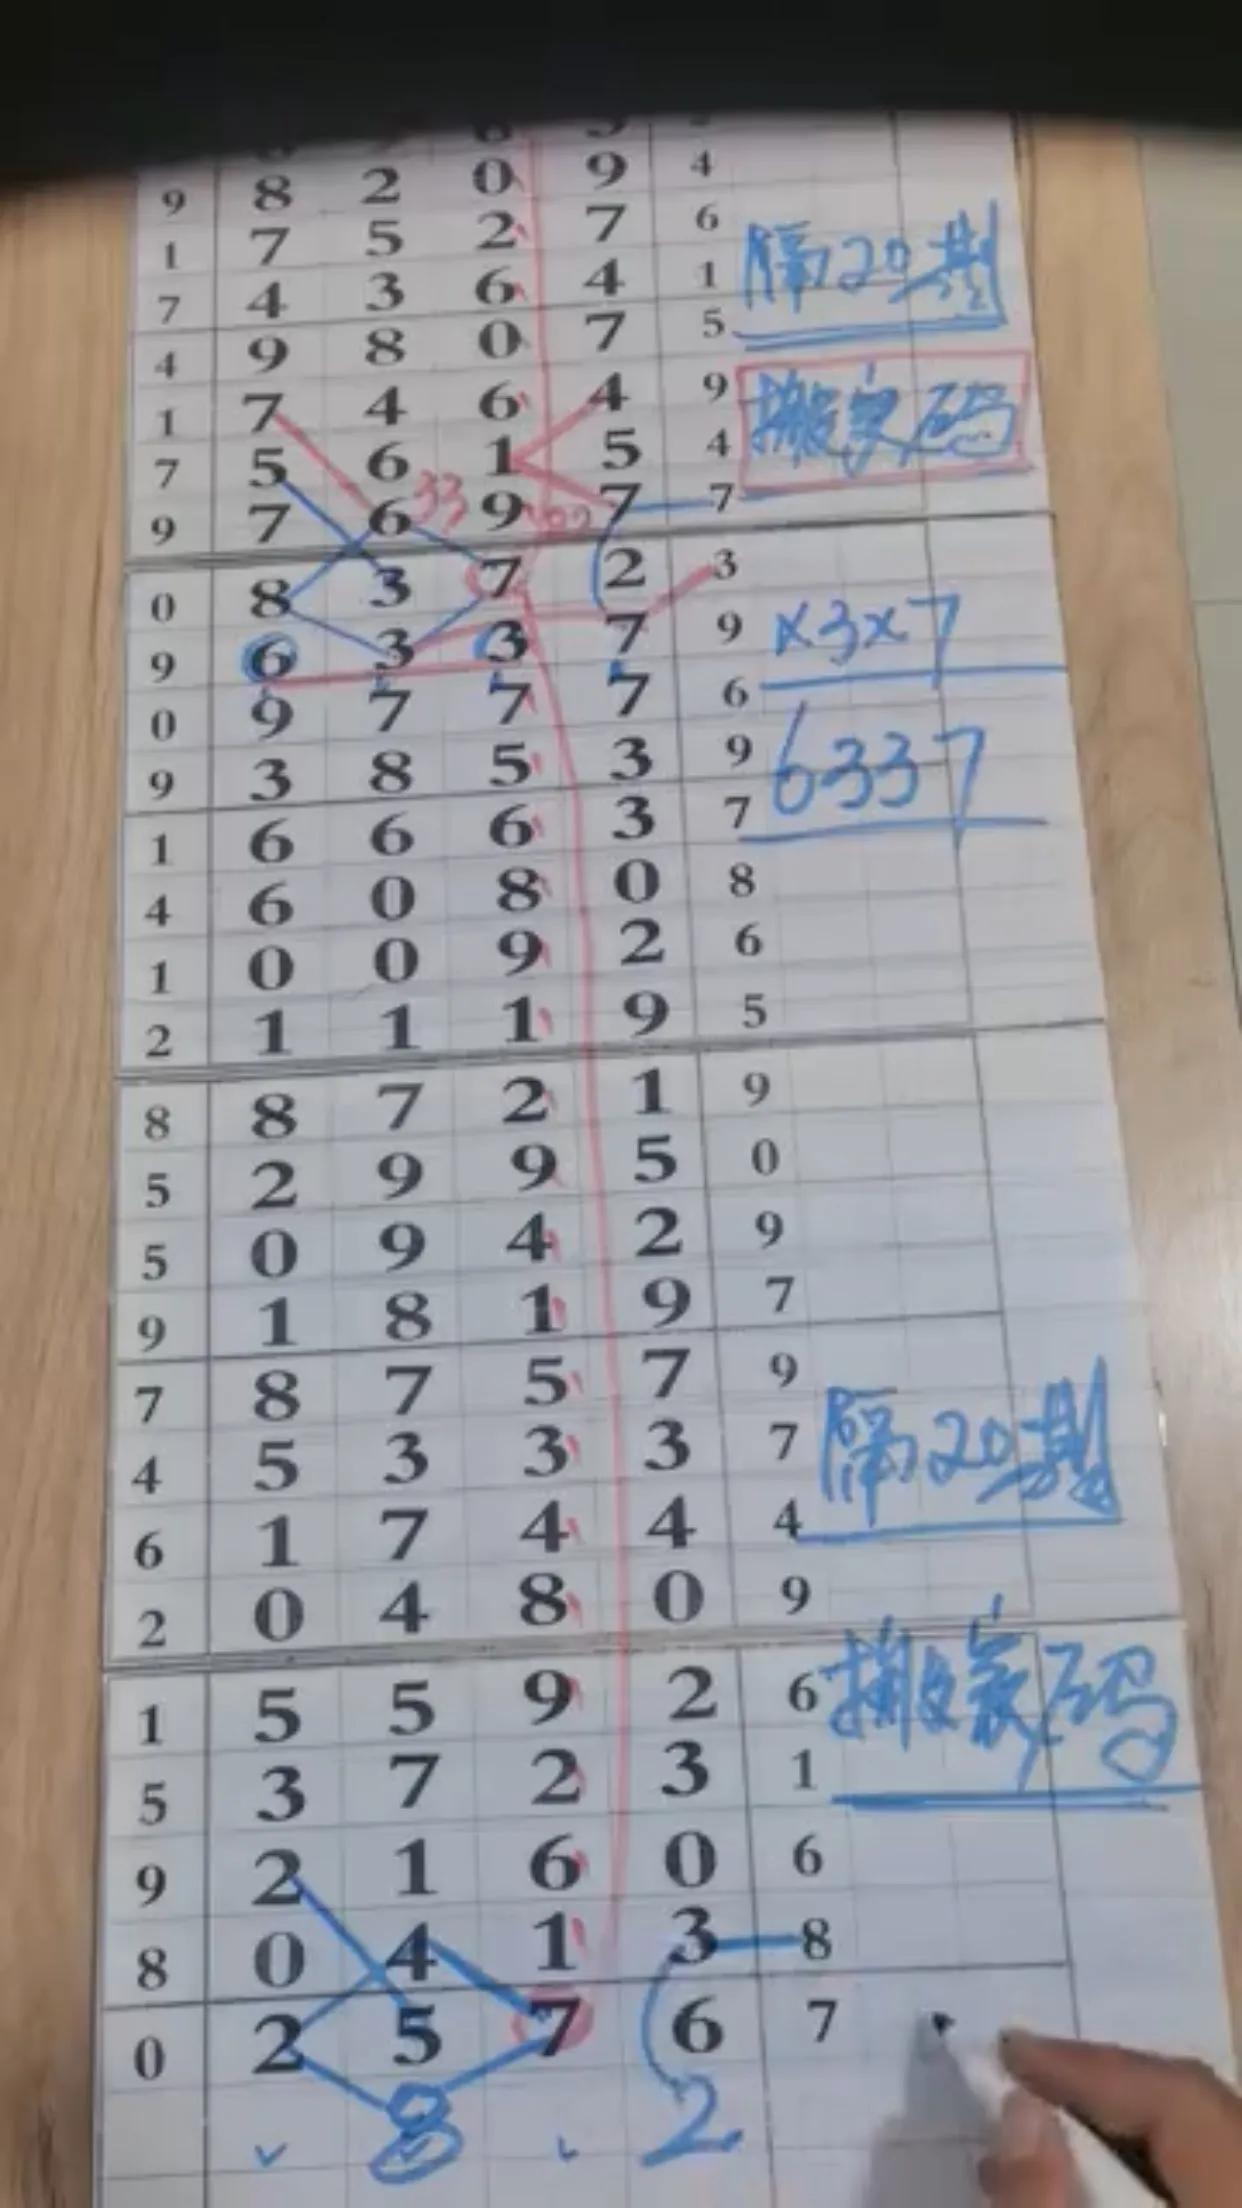 9 8 2 0 9 4
1 7 5 2 7 6 隔20期
7 4 3 6 4 1
4 9 8 0 7 5
1 7 4 6 4 9 搬家码
7 5 6 1 5 4
9 7 6 33 9 7 7
0 8 3 7 2 3
9 6 3 3 7 9 x3x7
0 9 7 7 7 6
9 3 8 5 3 9 6337
1 6 6 6 3 7
4 6 0 8 0 8
1 0 0 9 2 6
2 1 1 1 9 5
8 8 7 2 1 9
5 2 9 9 5 0
5 0 9 4 2 9
9 1 8 1 9 7
7 8 7 5 7 9
4 5 3 3 3 7 隔20期
6 1 7 4 4 4
2 0 4 8 0 9
1 5 5 9 2 6 搬家码
5 3 7 2 3 1
9 2 1 6 0 6
8 0 4 1 3 8
0 2 5 7 6 7
8 2